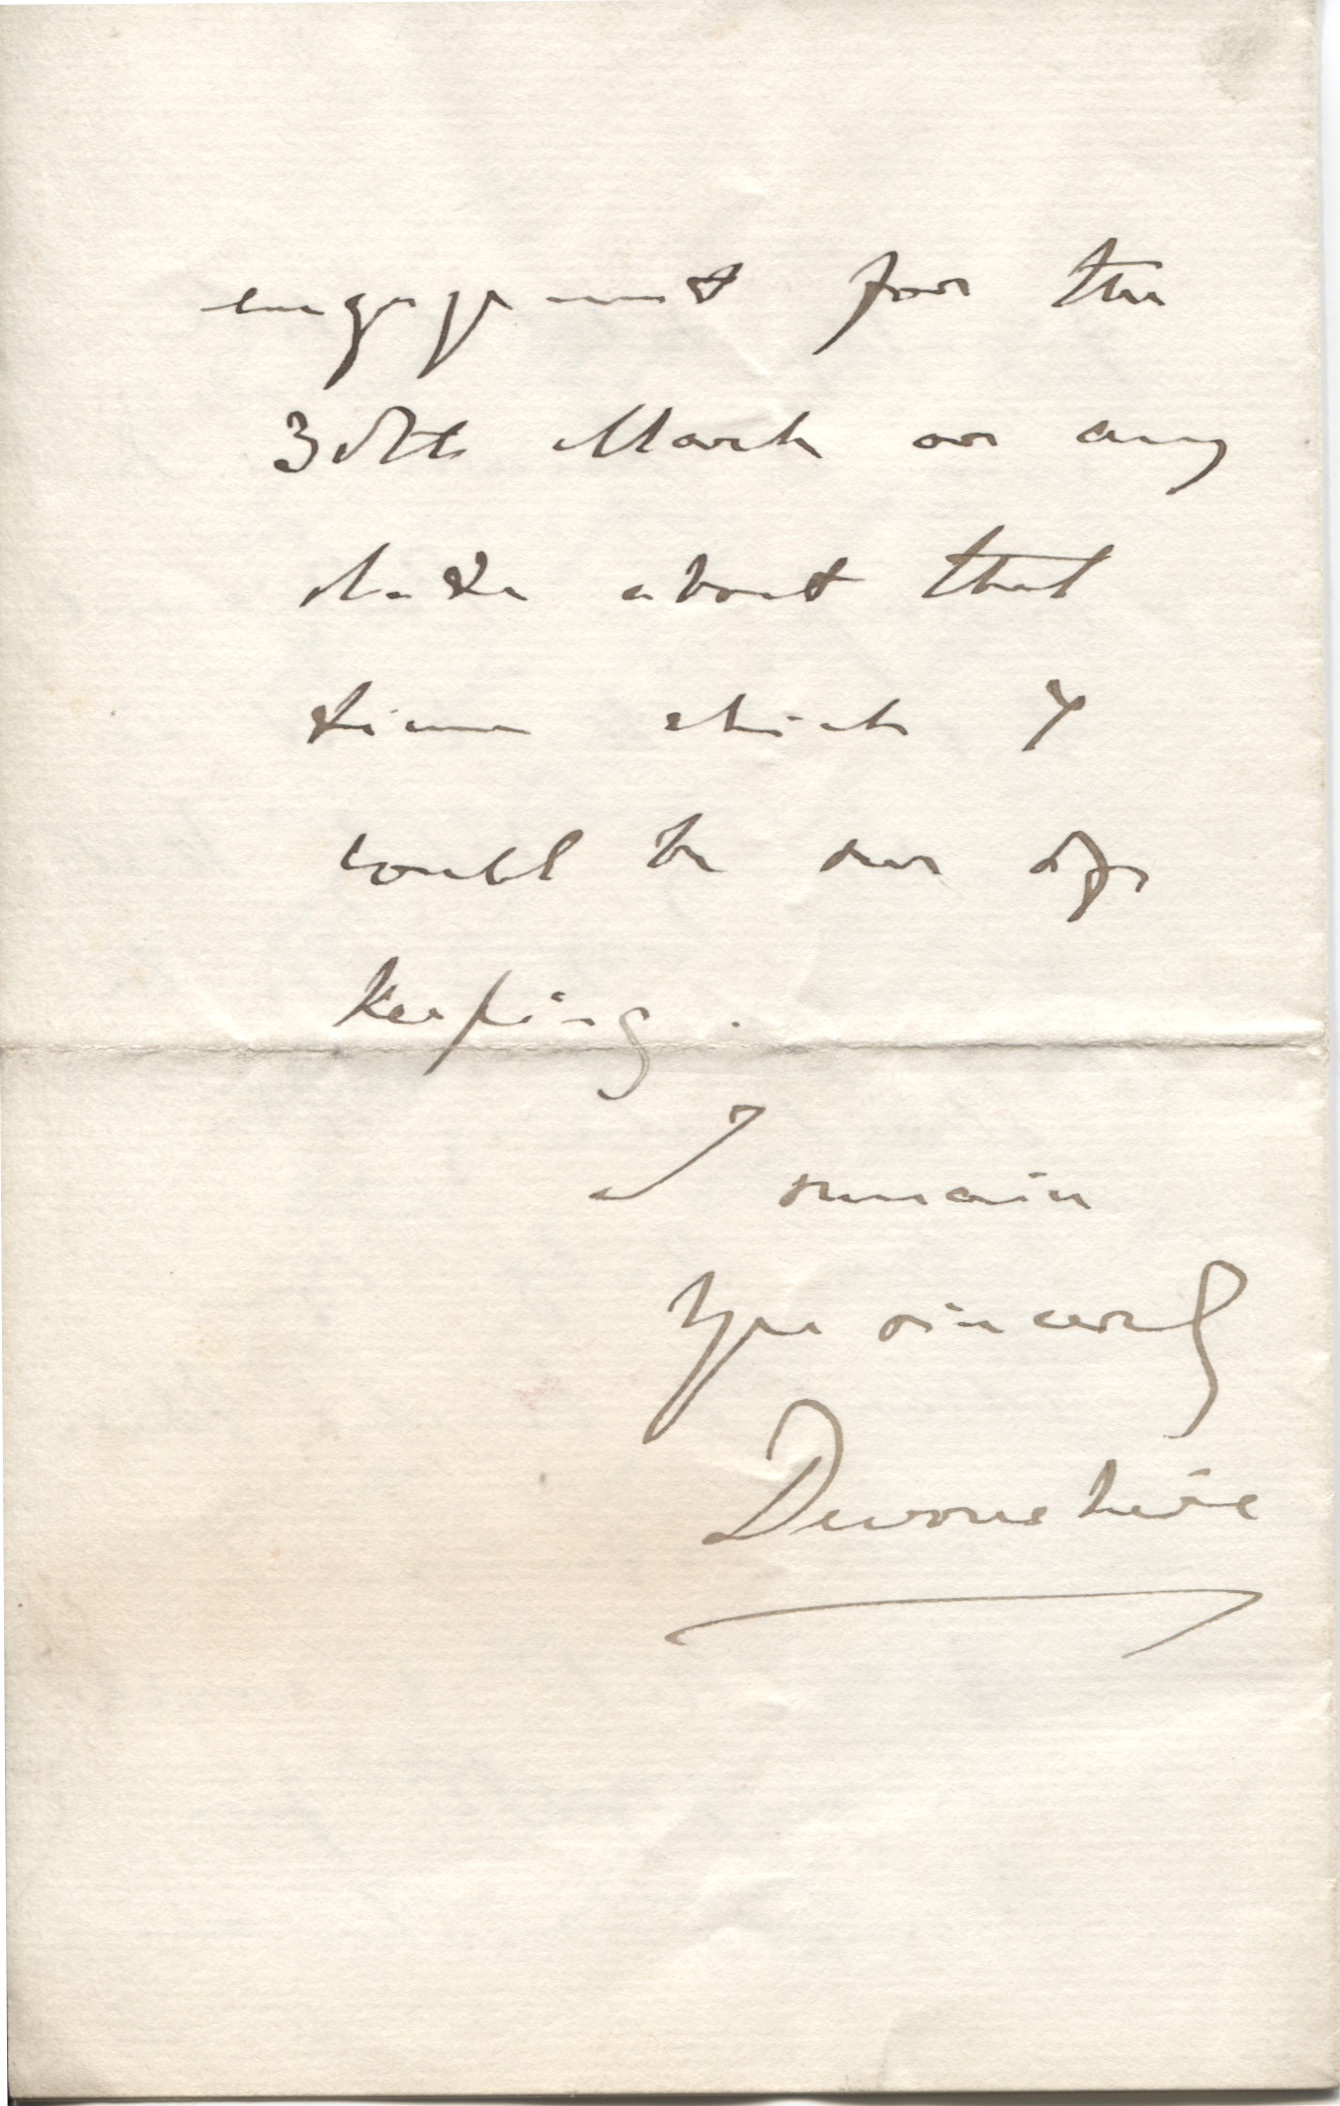 engagement for the
30th March or any
date about that
time which I
could be sure of
keeping.
I remain
Yrs sincerely
Devonshire